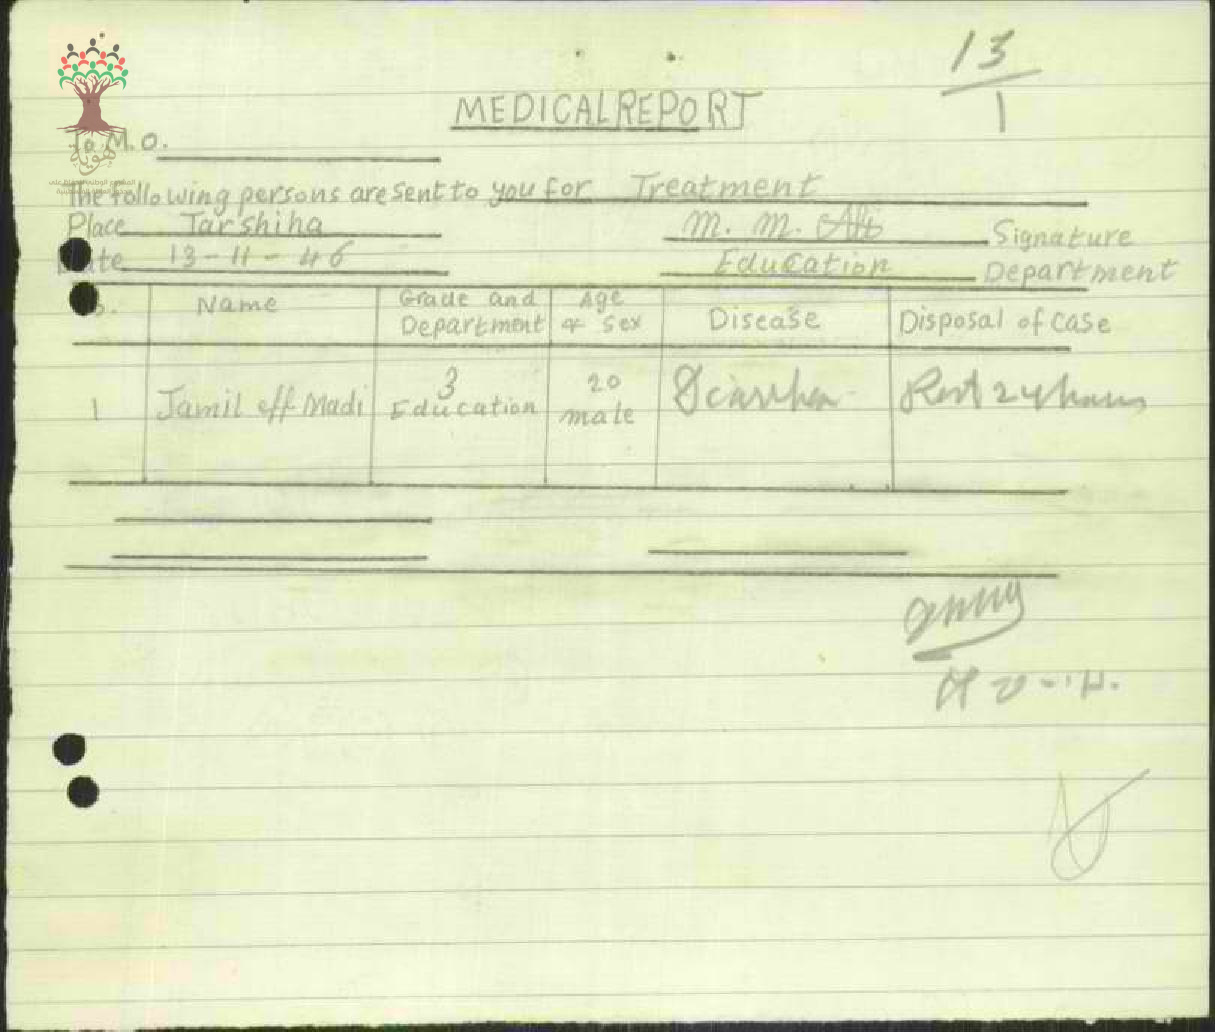 13
1
MEDICAL REPORT
To M.O.
The following persons are sent to you for Treatment
Place Tarshiha
M. M. Signature
Date 13-11-46
Education Department
Name Grade and Department Age & Sex Disease Disposal of Case
1 Jamil eff Madi 3 Education 20 male Diarrhea Rest 24 hours